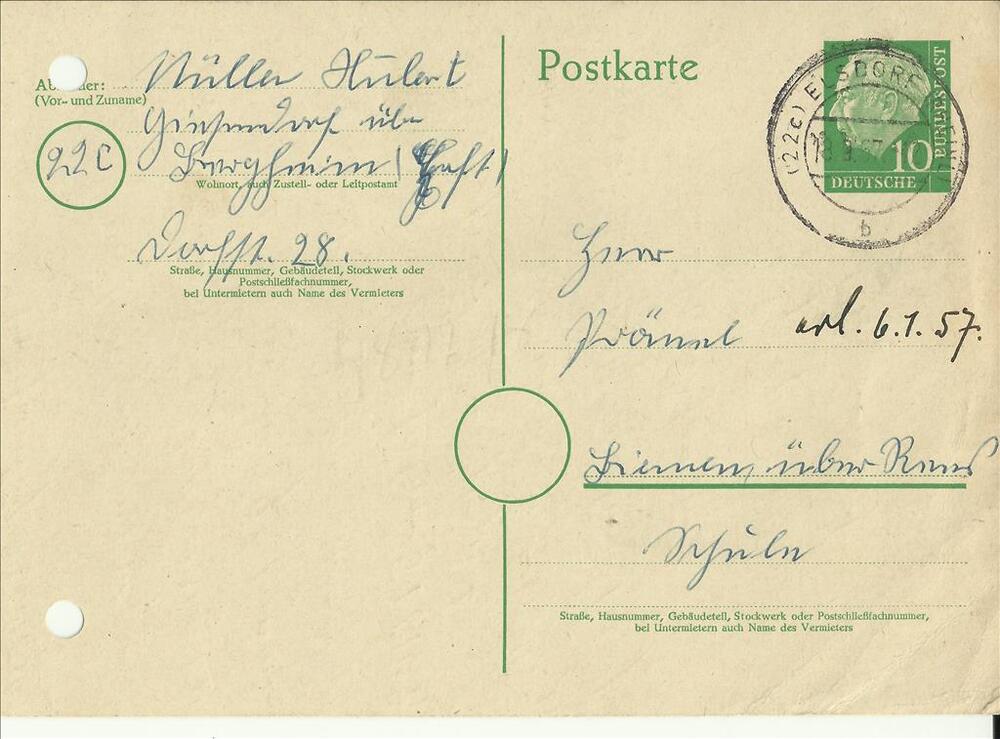 Müller Hubert
(Vor- und Zuname)
Giesendorf über
22c
Bergheim (Erft)
Wohnort, auch Zustell- oder Leitpostamt
Dorfst. 28.
Straße, Hausnummer, Gebäudeteil, Stockwerk oder
Postschließfachnummer,
bei Untermietern auch Name des Vermieters
Postkarte
(22c) ELSDORF
b
10
DEUTSCHE
BUNDESPOST
Herr
erl. 6.1.57.
Bienen, über Rees
Schule
Straße, Hausnummer, Gebäudeteil, Stockwerk oder Postschließfachnummer,
bei Untermietern auch Name des Vermieters